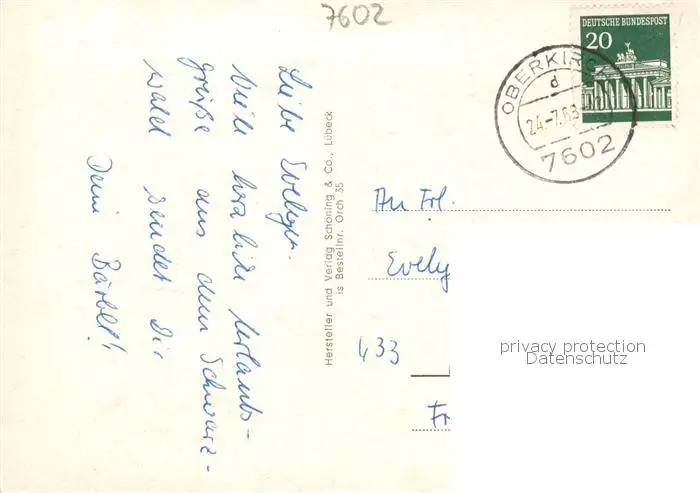 7602
Liebe Evelyn.
Viele herzliche Urlaubs-
grüße aus dem Schwarz-
wald sendet Dir
Deine Bärbel!
Hersteller und Verlag Schöning & Co., Lübeck
is Bestellnr. Orch 35
DEUTSCHE BUNDESPOST
20
OBERKIRCH
d
24.-7.68
7602
An Frl.
Evely
433
privacy protection
Datenschutz